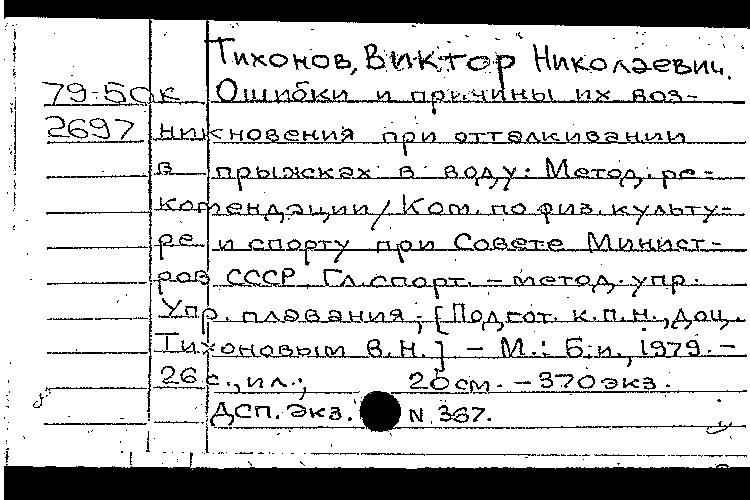 Тихонов, Виктор Николаевич.
79-50к Ошибки и причины их воз-
2697 никновения при отталкивании
в прыжках в воду: Метод. ре-
комендации / Ком. по физ. культу-
ре и спорту при Совете Минист-
ров СССР, Гл. спорт. - метод. упр.
Упр. плавания; [Подгот. к.п.н., доц.
Тихоновым В.Н.] - М.: Б.и., 1979. -
26 с., ил.; 20 см. - 370 экз.
ДСП. Экз. N 367.